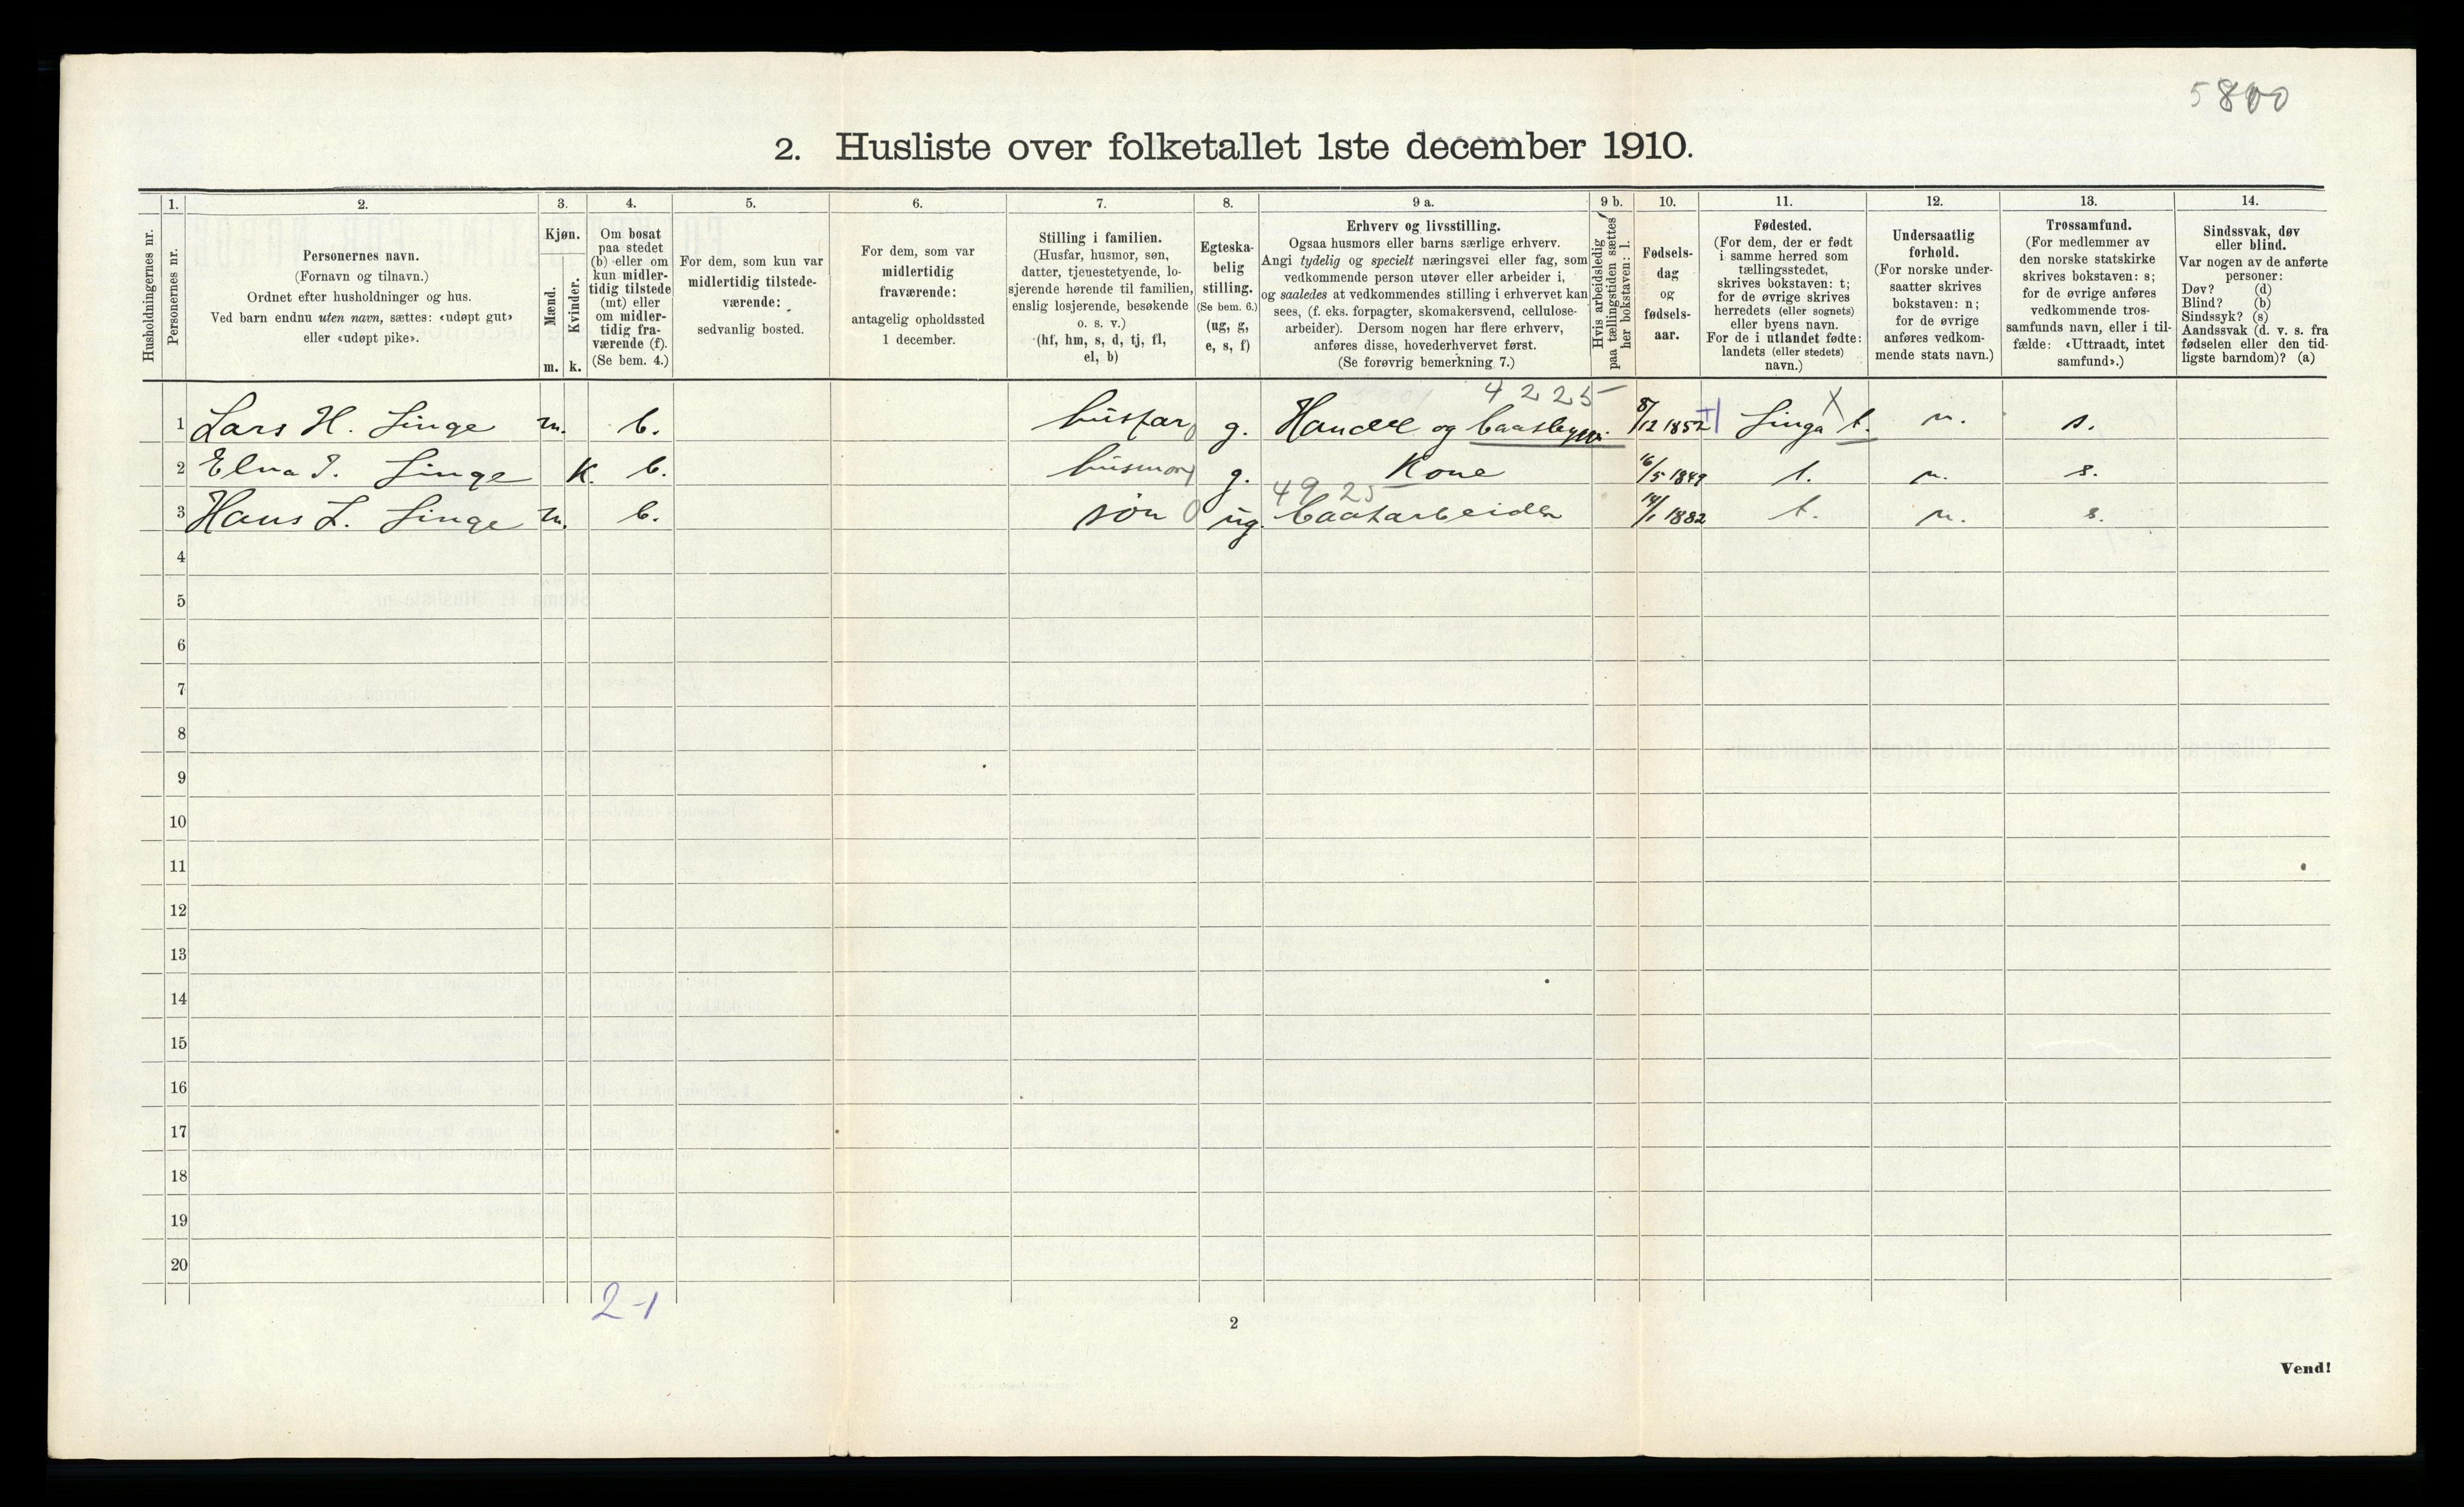 5800
2. Husliste over folketallet 1ste december 1910.
Husholdningernes nr.
1.
Personernes nr.
2.
Personernes navn.
(Fornavn og tilnavn.)
Ordnet efter husholdninger og hus.
Ved barn endnu uten navn, sættes: «udøpt gut»
eller «udøpt pike».
3.
Kjøn.
Mænd.
Kvinder.
m. k.
4.
Om bosat
paa stedet
(b) eller om
kun midler-
tidig tilstede
(mt) eller
om midler-
tidig fra-
værende (f).
(Se bem. 4.)
5.
For dem, som kun var
midlertidig tilstede-
værende:
sedvanlig bosted.
6.
For dem, som var
midlertidig
fraværende:
antagelig opholdssted
1 december.
7.
Stilling i familien.
(Husfar, husmor, søn,
datter, tjenestetyende, lo-
sjerende hørende til familien,
enslig losjerende, besøkende
o. s. v.)
(hf, hm, s, d, tj, fl,
el, b)
8.
Egteska-
belig
stilling.
(Se bem. 6.)
(ug, g,
e, s, f)
9 a.
Erhverv og livsstilling.
Ogsaa husmors eller barns særlige erhverv.
Angi tydelig og specielt næringsvei eller fag, som
vedkommende person utøver eller arbeider i,
og saaledes at vedkommendes stilling i erhvervet kan
sees, (f. eks. forpagter, skomakersvend, cellulose-
arbeider). Dersom nogen har flere erhverv,
anføres disse, hovederhvervet først.
(Se forøvrig bemerkning 7.)
9 b.
Hvis arbeidsledig
paa tællingstiden sættes
her bokstaven: l.
10.
Fødsels-
dag
og
fødsels-
aar.
11.
Fødested.
(For dem, der er født
i samme herred som
tællingsstedet,
skrives bokstaven: t;
for de øvrige skrives
herredets (eller sognets)
eller byens navn.
For de i utlandet fødte:
landets (eller stedets)
navn.)
12.
Undersaatlig
forhold.
(For norske under-
saatter skrives
bokstaven: n;
for de øvrige
anføres vedkom-
mende stats navn.)
13.
Trossamfund.
(For medlemmer av
den norske statskirke
skrives bokstaven: s;
for de øvrige anføres
vedkommende tros-
samfunds navn, eller i til-
fælde: «Uttraadt, intet
samfund».)
14.
Sindssvak, døv
eller blind.
Var nogen av de anførte
personer:
Døv? (d)
Blind? (b)
Sindssyk? (s)
Aandssvak (d. v. s. fra
fødselen eller den tid-
ligste barndom)? (a)
4225
1 Lars H. Linge m. b. husfar g. Handel og baatbygg. 8/12 1852 Linga t. n. s.
2 Elna I. Linge k. b. husmor g. Kone 16/5 1849 t. n. s.
49 25
3 Hans L. Linge m. b. søn 0 ug. baatarbeider 14/1 1882 t. n. s.
4
5
6
7
8
9
10
11
12
13
14
15
16
17
18
19
20
2-1
2
Vend!